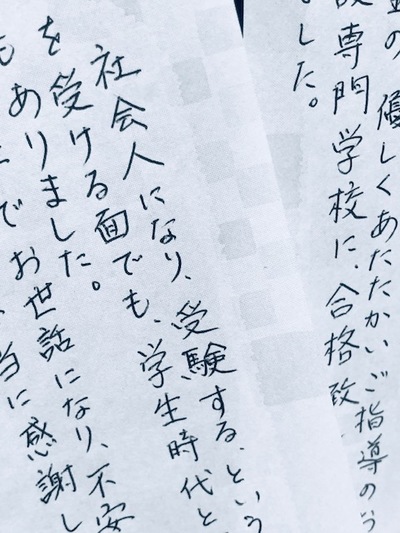 の、優しくあたたかいご指導のう
専門学校に、合格致
した。
社会人になり、受験する、という
を受ける面でも、学生時代と
もありました。
でお世話になり、不安
当に感謝し